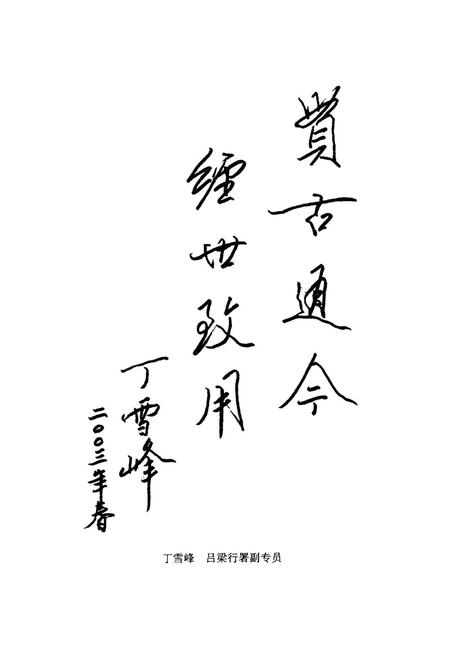 貫古通今
经世致用
丁雪峰
二00三年春
丁雪峰 吕梁行署副专员